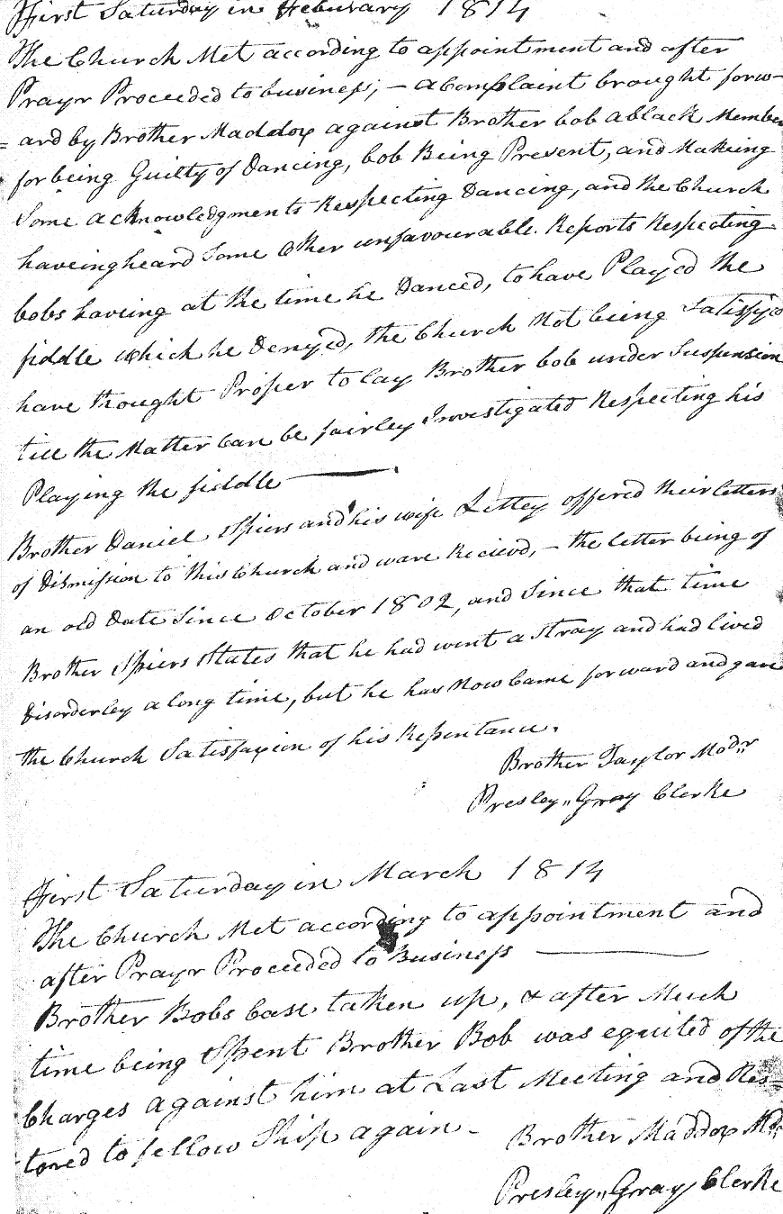 First Saturday in Feburary 1814
The Church Met according to appointment and after
Prayr Proceeded to business; – a Complaint brought forw-
= ard by Brother Maddox against Brother bob a black Member
for being Guilty of Dancing, bob Being Present, and Making
Some acknowledgments Respecting Dancing, and the Church
haveing heard Some Other unfavourable Reports Respecting
bobs having at the time he Danced, to have Played the
fiddle which he Denyed, the Church Not being Satisfyd
have thought Proper to lay Brother bob under Suspension
till the Matter Can be fairley Investigated Respecting his
Playing the fiddle —
Brother Daniel Spiers and his wife Lettey offered their letters
of Dismission to this Church and ware Recievd, – the letter being of
an old Date Since October 1802, and Since that time
Brother Spiers States that he had went a Stray and had lived
Disorderley a long time, but he has Now Came forward and gave
the Church Satisfaxion of his Repentance.
Brother Taylor Modr
Presley,, Gray Clerke
First Saturday in March 1814
The Church Met according to appointment and
after Prayr Proceeded to Business —
Brother Bobs Case taken up, & after Much
time being Spent Brother Bob was equited of the
Charges against him at Last Meeting and Res=
tored to fellow Ship again –
Brother Maddox Modr
Presley,, Gray Clerke